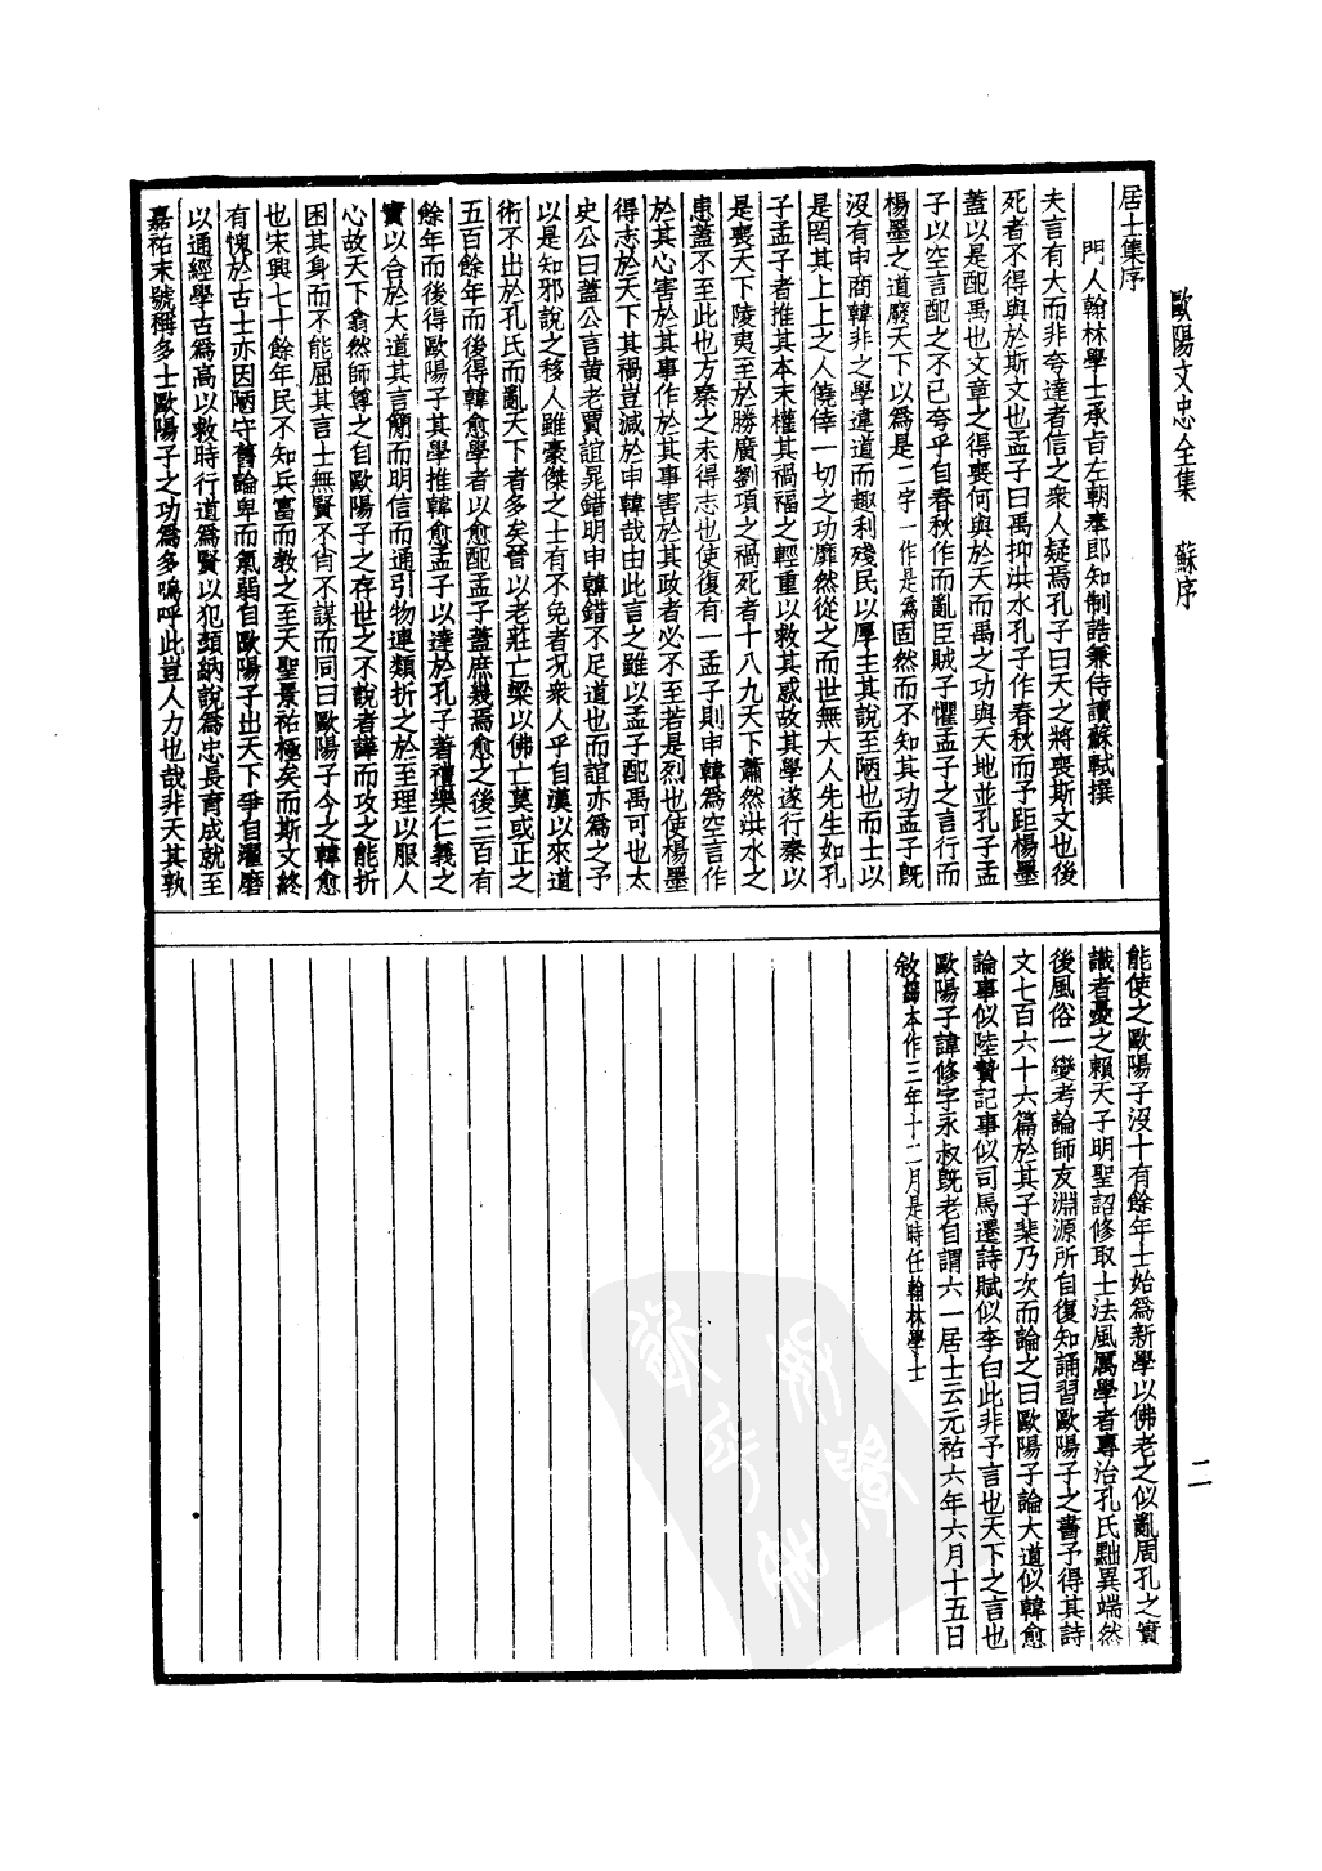 歐陽文忠全集　蘇序
二
居士集序
門人翰林學士承旨左朝奉郎知制誥兼侍讀蘇軾撰
夫言有大而非夸達者信之衆人疑焉孔子曰天之將喪斯文也後
死者不得與於斯文也孟子曰禹抑洪水孔子作春秋而予距楊墨
蓋以是配禹也文章之得喪何與於天而禹之功與天地並孔子孟
子以空言配之不已夸乎自春秋作而亂臣賊子懼孟子之言行而
楊墨之道廢天下以爲是二字一作是爲固然而不知其功孟子旣
沒有申商韓非之學違道而趣利殘民以厚主其說至陋也而士以
是罔其上上之人僥倖一切之功靡然從之而世無大人先生如孔
子孟子者推其本末權其禍福之輕重以救其惑故其學遂行秦以
是喪天下陵夷至於勝廣劉項之禍死者十八九天下蕭然洪水之
患蓋不至此也方秦之未得志也使復有一孟子則申韓爲空言作
於其心害於其事作於其事害於其政者必不至若是烈也使楊墨
得志於天下其禍豈減於申韓哉由此言之雖以孟子配禹可也太
史公曰蓋公言黃老賈誼晁錯明申韓錯不足道也而誼亦爲之予
以是知邪說之移人雖豪傑之士有不免者況衆人乎自漢以來道
術不出於孔氏而亂天下者多矣晉以老莊亡梁以佛亡莫或正之
五百餘年而後得韓愈學者以愈配孟子蓋庶幾焉愈之後三百有
餘年而後得歐陽子其學推韓愈孟子以達於孔子著禮樂仁義之
實以合於大道其言簡而明信而通引物連類折之於至理以服人
心故天下翕然師尊之自歐陽子之存世之不說者譁而攻之能折
困其身而不能屈其言士無賢不肖不謀而同曰歐陽子今之韓愈
也宋興七十餘年民不知兵富而教之至天聖景祐極矣而斯文終
有愧於古士亦因陋守舊論卑而氣弱自歐陽子出天下爭自濯磨
以通經學古爲高以救時行道爲賢以犯顏納說爲忠長育成就至
嘉祐末號稱多士歐陽子之功爲多嗚呼此豈人力也哉非天其孰
能使之歐陽子沒十有餘年士始爲新學以佛老之似亂周孔之實
識者憂之賴天子明聖詔修取士法風厲學者專治孔氏黜異端然
後風俗一變考論師友淵源所自復知誦習歐陽子之書予得其詩
文七百六十六篇於其子棐乃次而論之曰歐陽子論大道似韓愈
論事似陸贄記事似司馬遷詩賦似李白此非予言也天下之言也
歐陽子諱修字永叔旣老自謂六一居士云元祐六年六月十五日
敘本作三年十二月是時任翰林學士